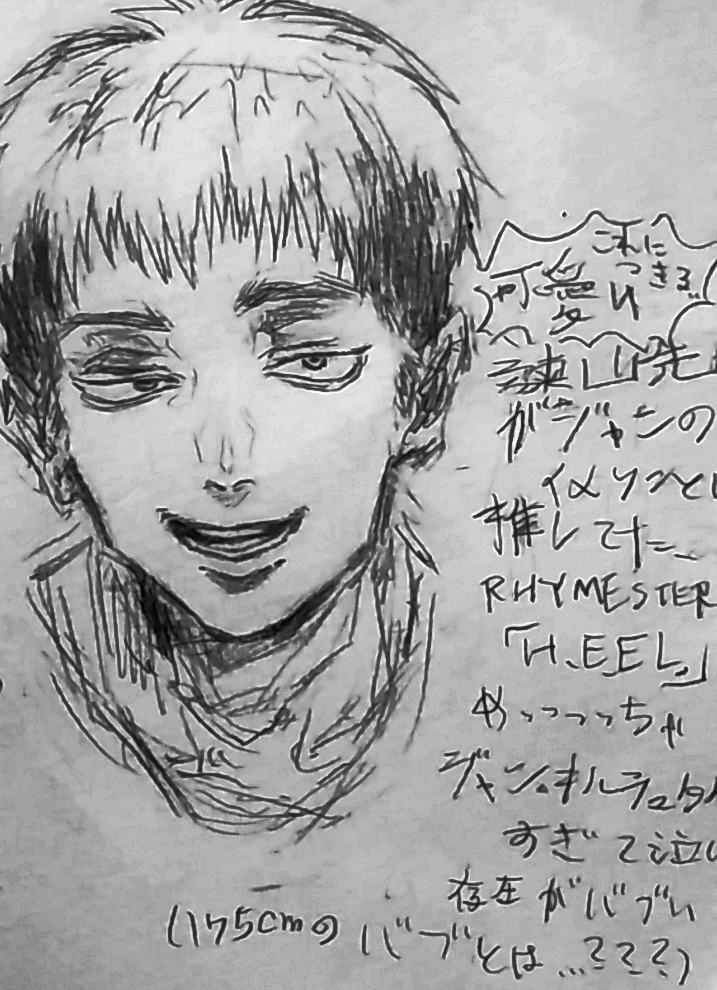 これに
つきる。
可愛い
諫山先
がジャンの
イメソンとし
推してた
RHYMESTER
「H.E.E.L」
めっっっっちゃ
ジャン・キルシュタイ
すぎて泣い
存在がバブい
(175cmの
バブとは…???)